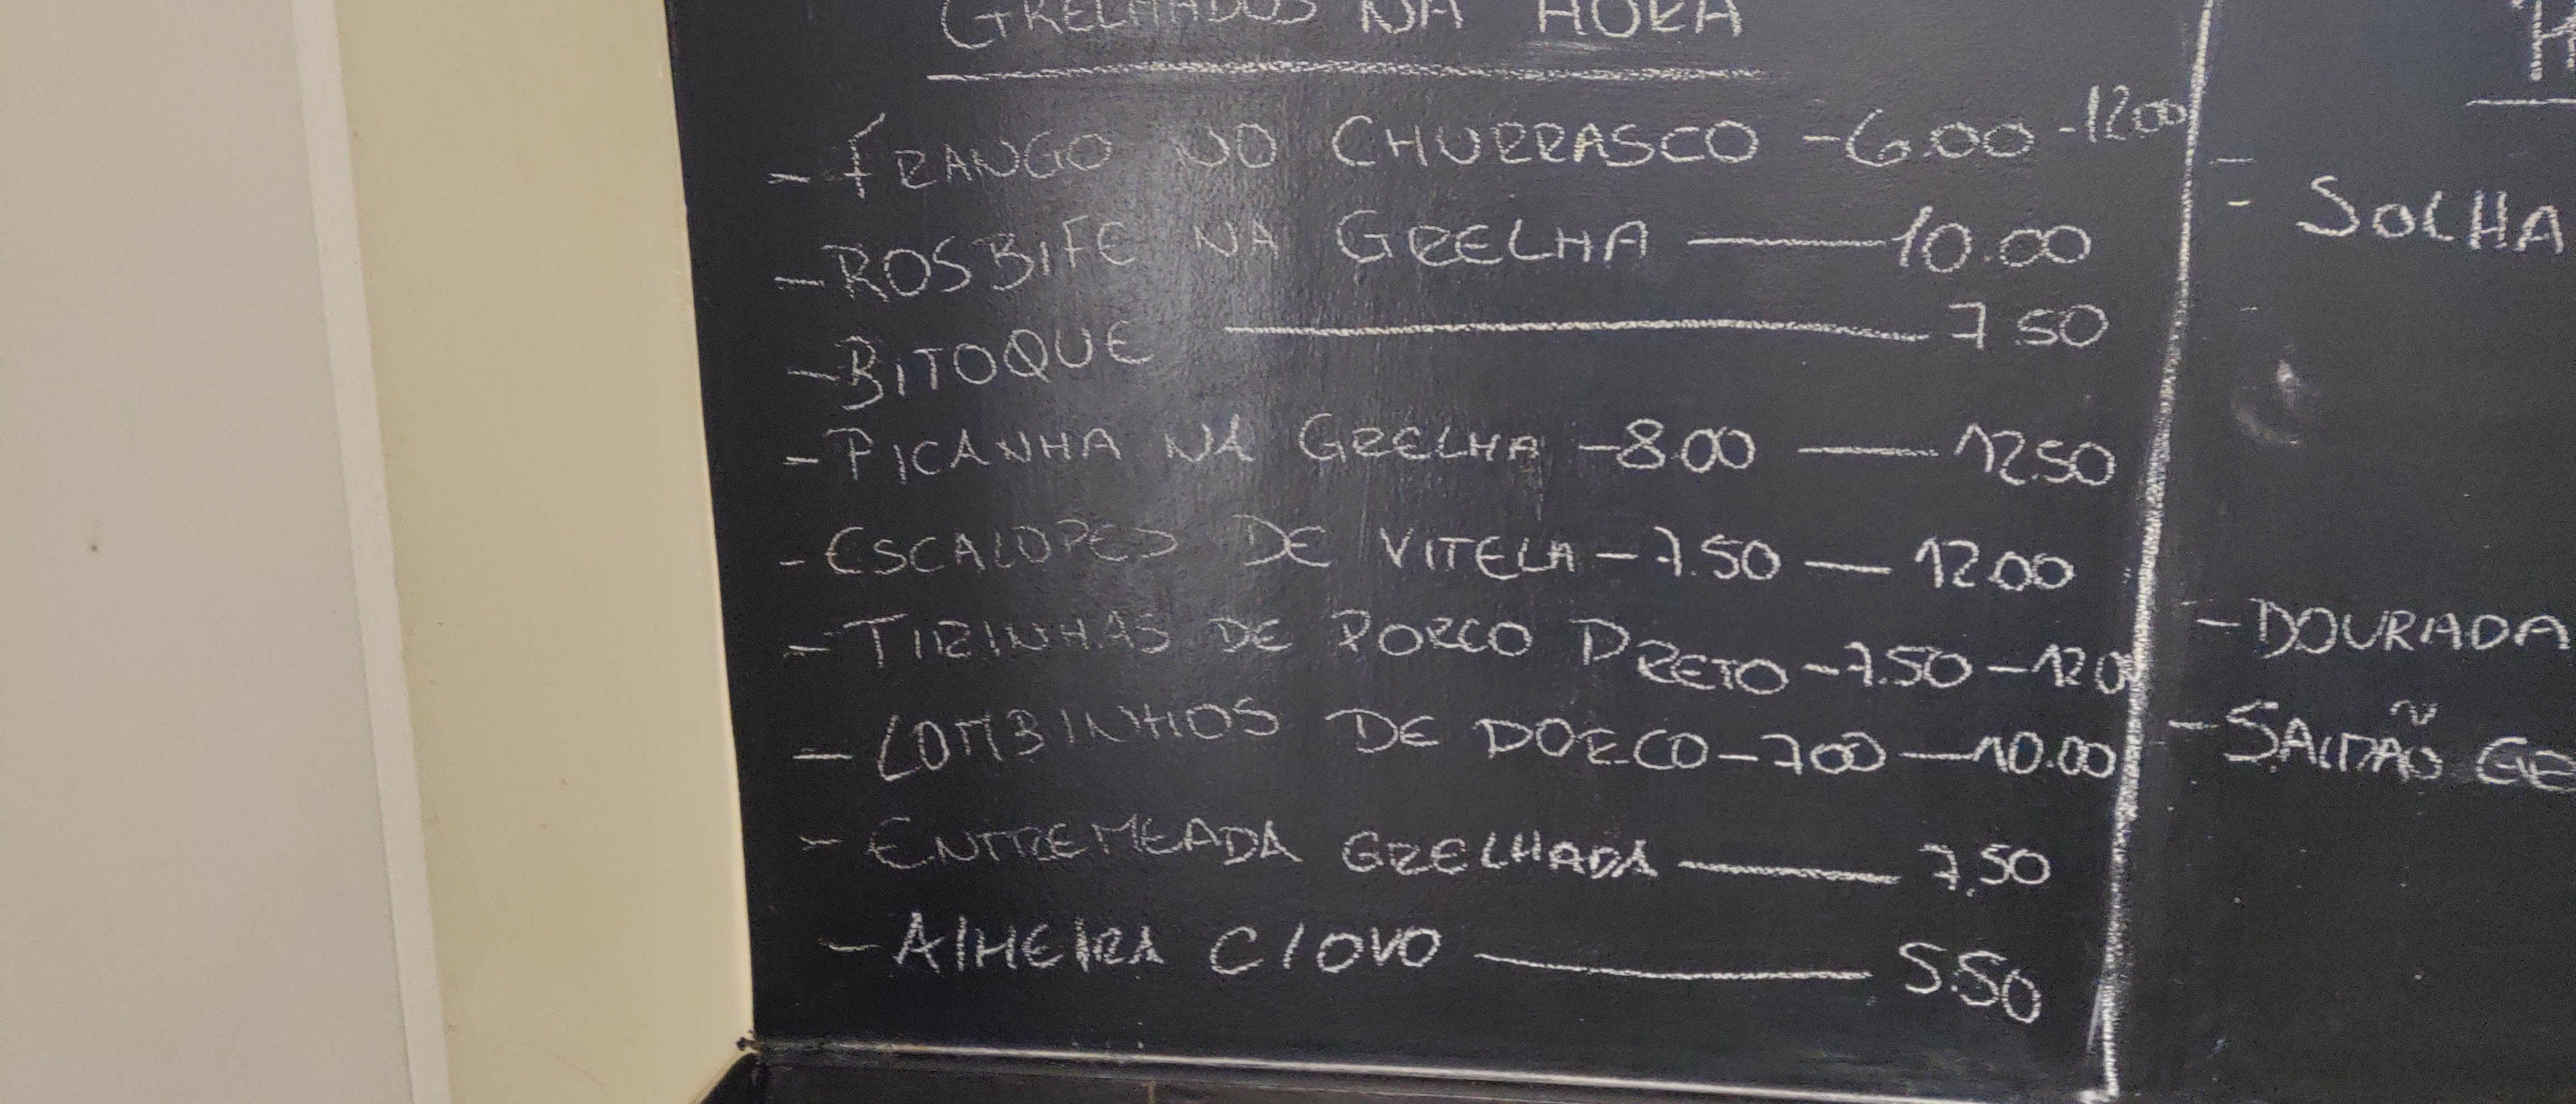 GRELHADOS NA HORA
- FRANGO NO CHURRASCO - 6.00 - 12.00
- ROSBIFE NA GRELHA — 10.00
- BITOQUE — 7.50
- PICANHA NA GRELHA - 8.00 — 12.50
- ESCALOPES DE VITELA - 7.50 — 12.00
- TIRINHAS DE PORCO PRETO - 7.50 - 12.0
- LOMBINHOS DE PORCO - 7.00 — 10.00
- ENTREMEADA GRELHADA — 7.50
- ALHEIRA C/ OVO — 5.50
- SOLHA
- DOURADA